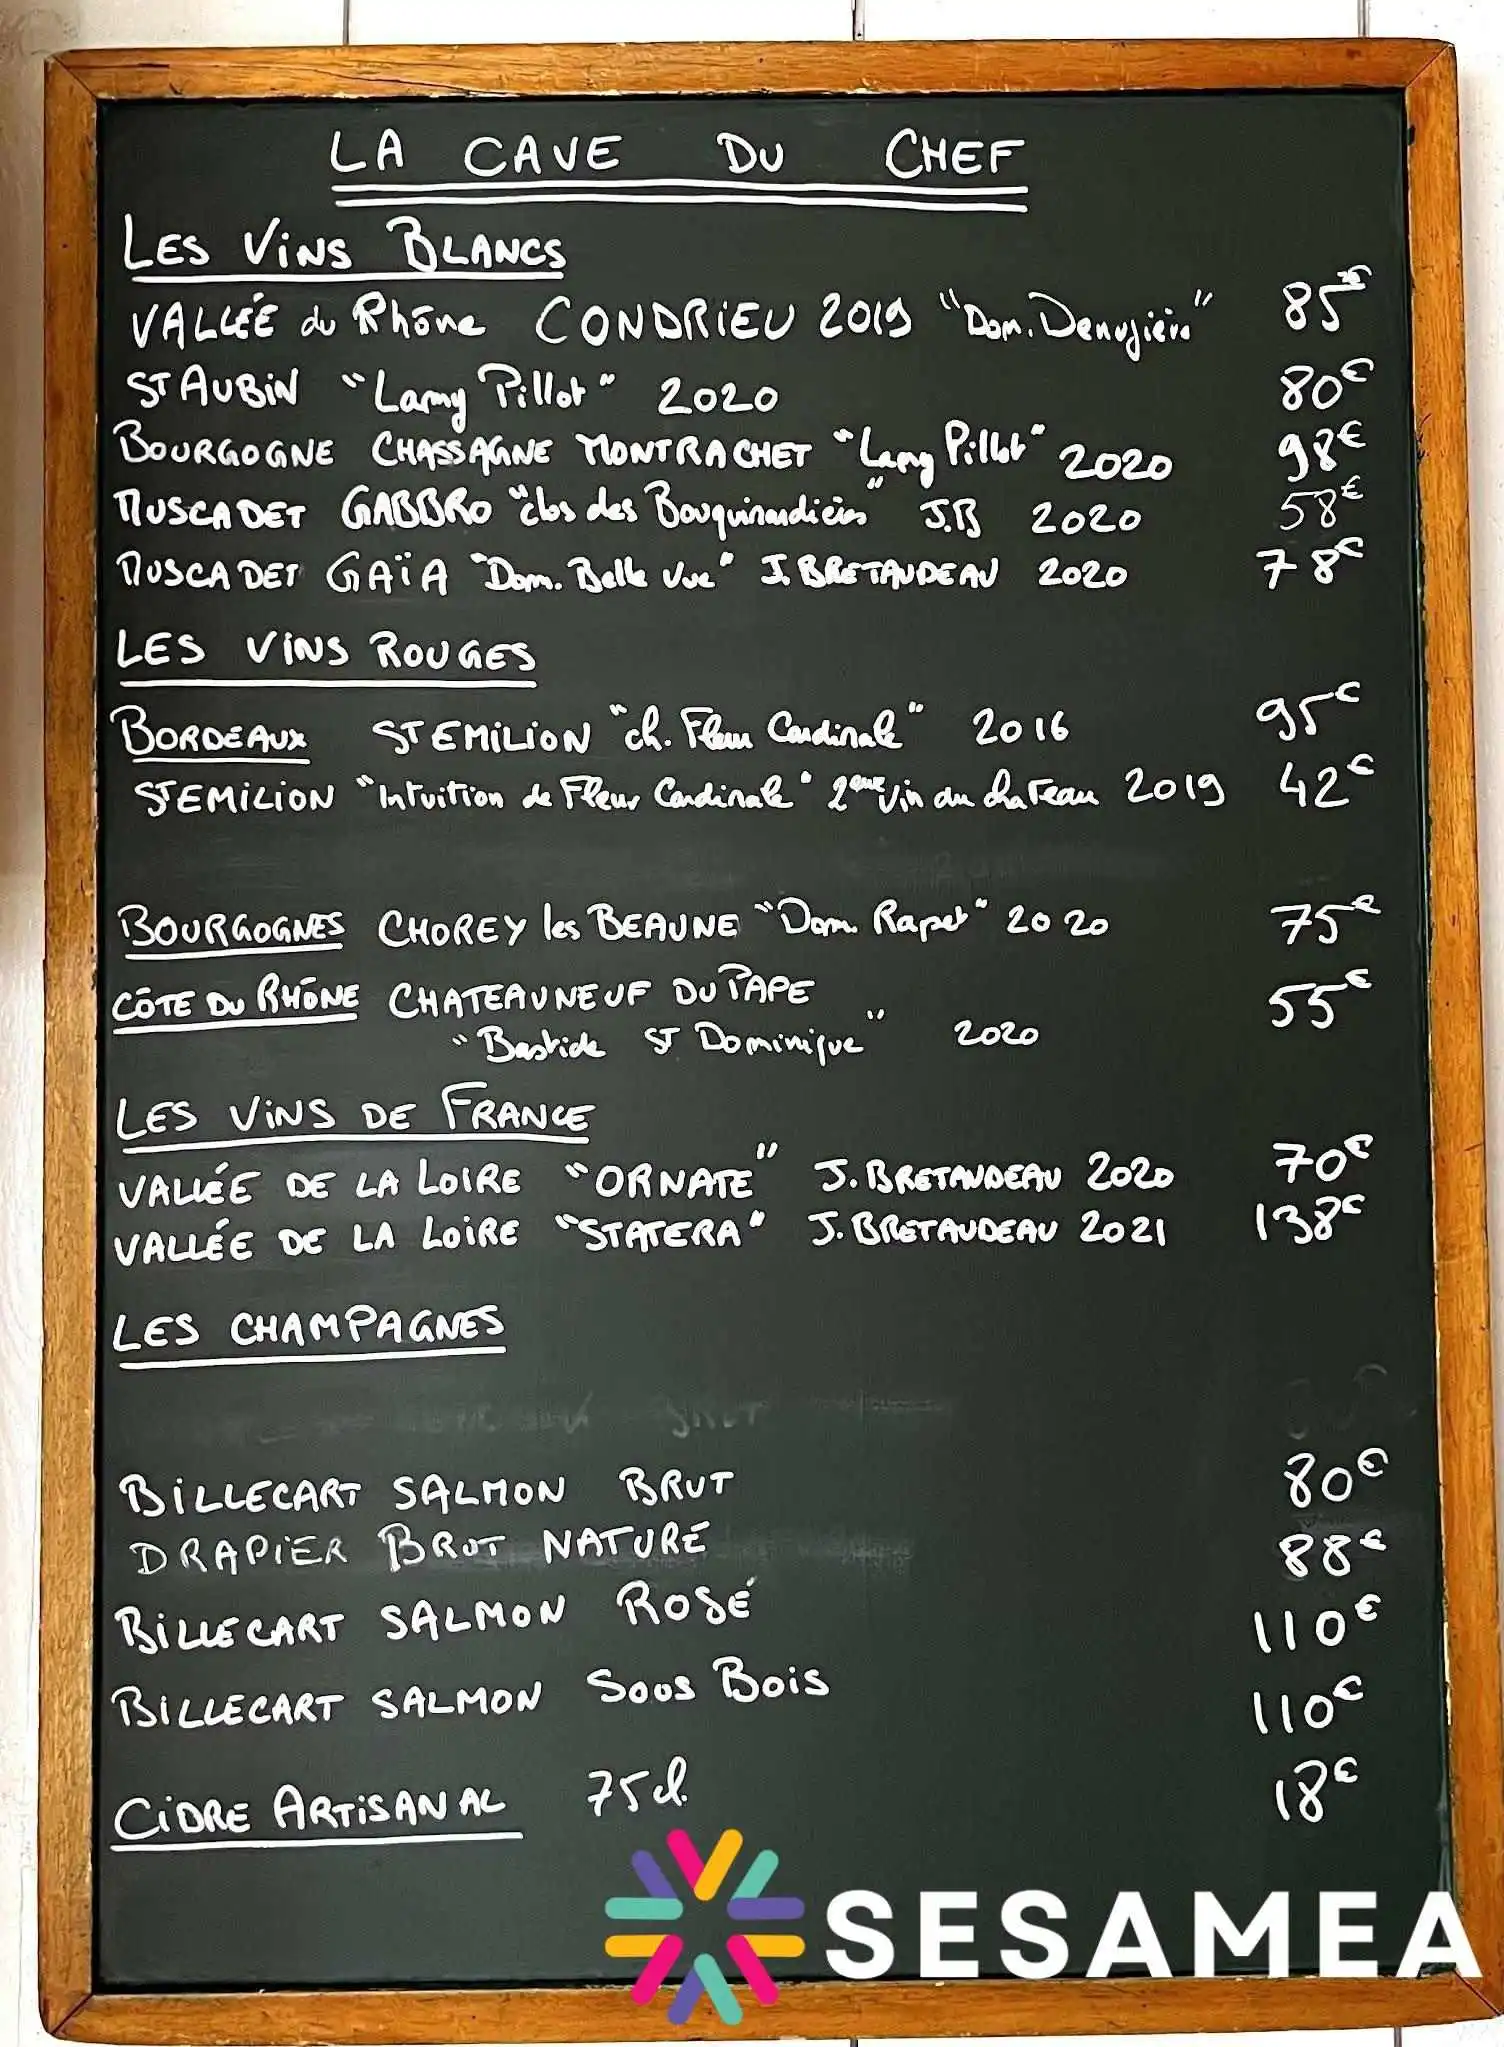 LA CAVE DU CHEF
LES ViNS BLANCS
VALLÉE du Rhône CONDRIEU 2019 "Dom. " 85€
ST AUBiN "Lamy Pillot" 2020 80€
BOURGOGNE CHASSAGNE MONTRACHET "Lamy Pillot" 2020 98€
MUSCADET GABBRO "clos des " J.B 2020 58€
MUSCADET GAÏA "Dom. Belle Vue" J. BRETAUDEAU 2020 78€
LES ViNS ROUGES
BORDEAUX ST EMiLiON "ch. Fleur Cardinale" 2016 95€
ST EMiLiON "Intuition de Fleur Cardinale" 2ème Vin du chateau 2019 42€
BOURGOGNES CHOREY les BEAUNE "Dom. Rapet" 2020 75€
CÔTE DU RHÔNE CHATEAUNEUF DU PAPE 55€
"Bastide ST Dominique" 2020
LES ViNS DE FRANCE
VALLÉE DE LA LOiRE "ORNATE" J. BRETAUDEAU 2020 70€
VALLÉE DE LA LOiRE "STATERA" J. BRETAUDEAU 2021 138€
LES CHAMPAGNES
BiLLECART SALMON BRUT 80€
DRAPiER BRUT NATURE 88€
BiLLECART SALMON ROSÉ 110€
BiLLECART SALMON Sous Bois 110€
CiDRE ARTiSANAL 75cl. 18€
SESAMEA